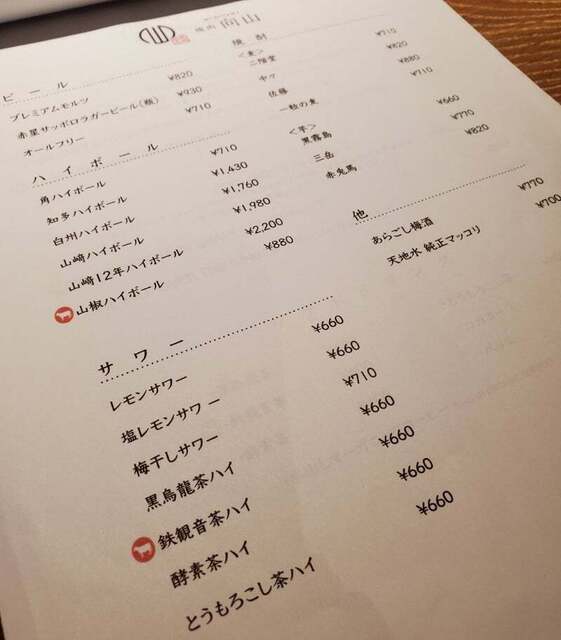 焼肉 南山
ビール
プレミアムモルツ ¥820
赤星サッポロラガービール(瓶) ¥930
オールフリー ¥710
ハイボール
角ハイボール ¥710
知多ハイボール ¥1,430
白州ハイボール ¥1,760
山崎ハイボール ¥1,980
山崎12年ハイボール ¥2,200
山椒ハイボール ¥880
サワー
レモンサワー ¥660
塩レモンサワー ¥660
梅干しサワー ¥710
黒烏龍茶ハイ ¥660
鉄観音茶ハイ ¥660
酵素茶ハイ ¥660
とうもろこし茶ハイ ¥660
焼酎
<麦>
二階堂 ¥710
中々 ¥820
佐藤 ¥880
一粒の麦 ¥710
<芋>
黒霧島 ¥660
三岳 ¥770
赤兎馬 ¥820
他
あらごし梅酒 ¥770
天地水 純正マッコリ ¥700